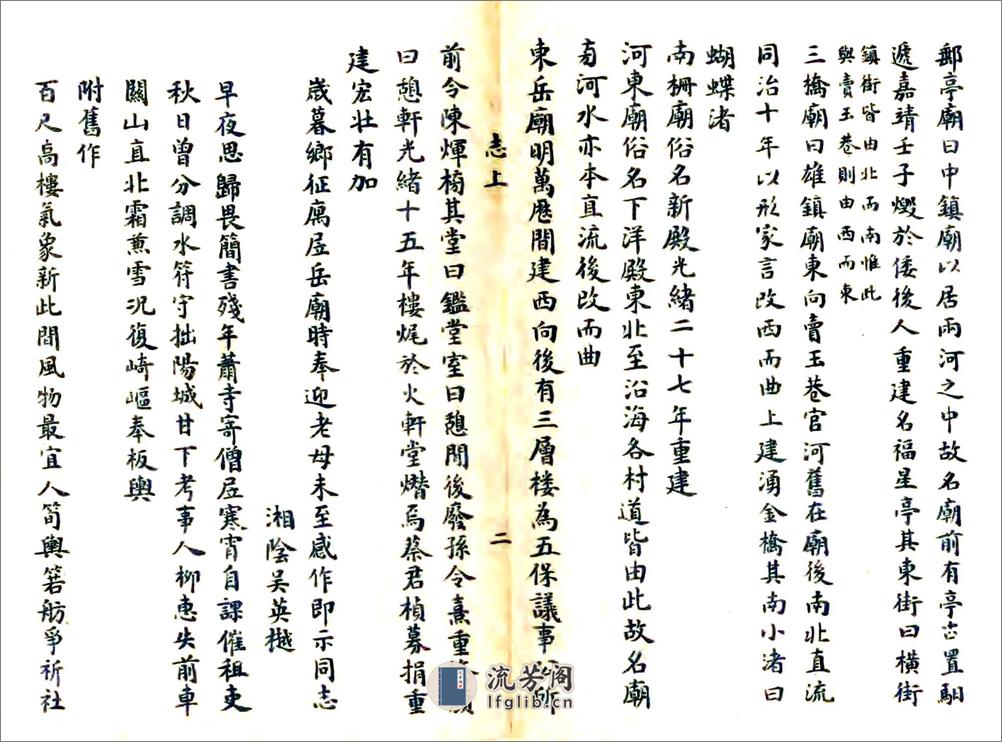 郵亭廟曰中鎮廟以居兩河之中故名廟前有亭古置馹
遞嘉靖壬子燬於倭後人重建名福星亭其東街曰橫街
鎮街皆由北而南惟此
與賣玉巷則由西而東
三橋廟曰雄鎮廟東向賣玉巷官河舊在廟後南北直流
同治十年以形家言改西而曲上建湧金橋其南小渚曰
蝴蝶渚
南柵廟俗名新殿光緒二十七年重建
河東廟俗名下洋殿東北至沿海各村道皆由此故名廟
南河水亦本直流後改而曲
東岳廟明萬曆間建西向後有三層樓為五保議事所
志上
二
前令陳煇橢其堂曰鑑堂室曰憩閒後廢孫令熹重
曰憩軒光緒十五年樓燬於火軒堂熸焉蔡君楨募捐重
建宏壯有加
歲暮鄉征寓居岳廟時奉迎老母未至感作即示同志
湘陰吳英樾
早夜思歸畏簡書殘年蕭寺寄僧居寒宵自課催租吏
秋日曾分調水符守拙陽城甘下考事人柳惠失前車
關山直北霜蕉雪況復崎嶇奉板輿
附舊作
百尺高樓氣象新此間風物最宜人筍輿箬舫爭祈社
流芳阁
lfglib.cn